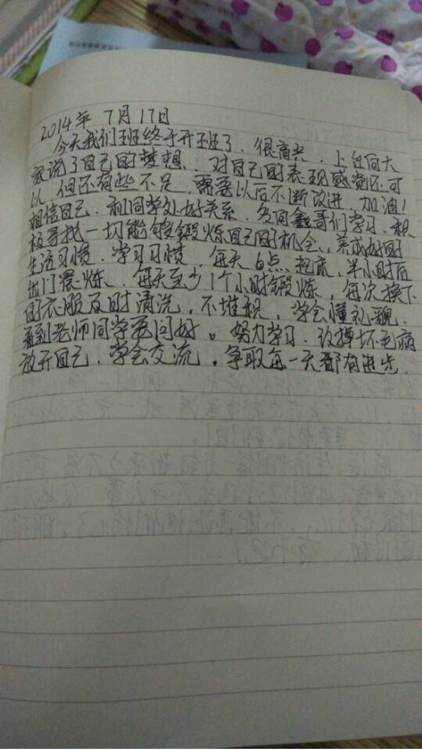 2014年 7月17日
今天我们班终于开班了，很高兴，上台向大
家说了自己的梦想，对自己的表现感觉还可
以，但还有些不足，需要以后不断改进，加油！
相信自己，和同学处好关系，多向鑫哥们学习，积
极寻找一切能够锻炼自己的机会，养成好的
生活习惯，学习习惯，每天6点起床，半小时后
出门晨炼，每天至少1个小时锻炼，每次换下
的衣服及时清洗，不堆积，学会懂礼貌，
看到老师同学要问好。努力学习，改掉坏毛病
放开自己，学会交流，争取每一天都有进步.